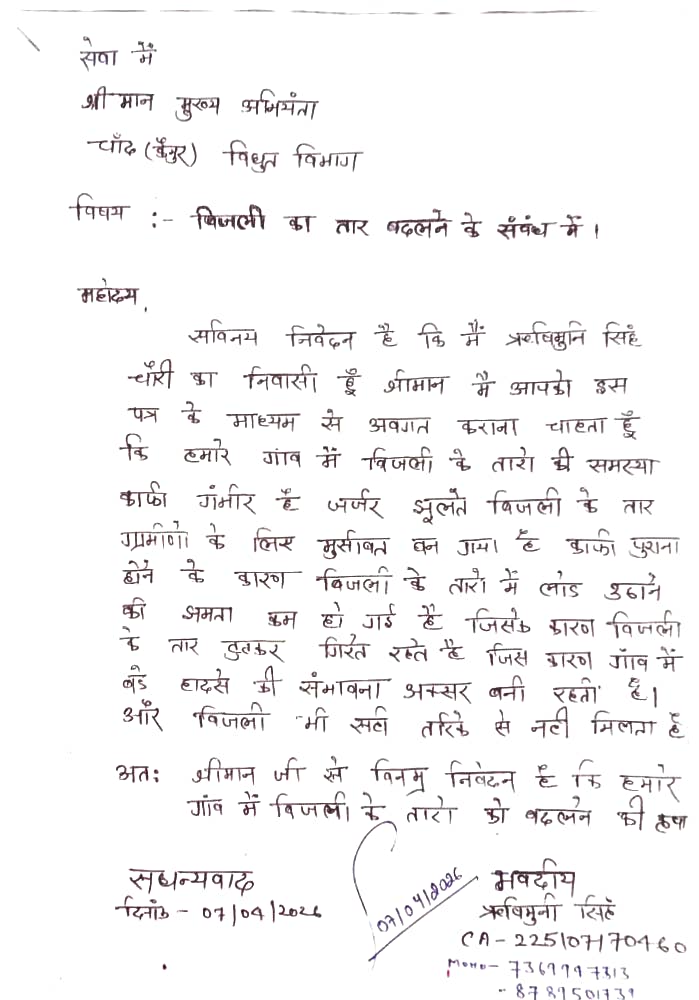 सेवा में
श्रीमान मुख्य अभियंता
चाँद (कैमुर) विधुत विभाग
विषय :- बिजली का तार बदलने के संबंध में ।
महोदय,
सविनय निवेदन है कि मैं ऋषिमुनि सिंह
चौरी का निवासी हूँ श्रीमान मै आपको इस
पत्र के माध्यम से अवगत कराना चाहता हूँ
कि हमारे गांव में बिजली के तारो की समस्या
काफी गंभीर है जर्जर झूलते बिजली के तार
ग्रामीणो के लिए मुसीबत बन गया है काफी पुराना
होने के कारण बिजली के तारो में लोड उठाने
की क्षमता कम हो गई है जिसके कारण बिजली
के तार टुटकर गिरते रहते है जिस कारण गांव में
बडे हादसे की संभावना अक्सर बनी रहती है।
और बिजली भी सही तरिके से नही मिलता है
अतः श्रीमान जी से विनम्र निवेदन है कि हमारे
गांव में बिजली के तारो को बदलने की कृपा
सधन्यवाद
दिनांक - 07/04/2026
07/04/2026
भवदीय
ऋषिमुनी सिंह
CA - 225107170460
- 8789501739